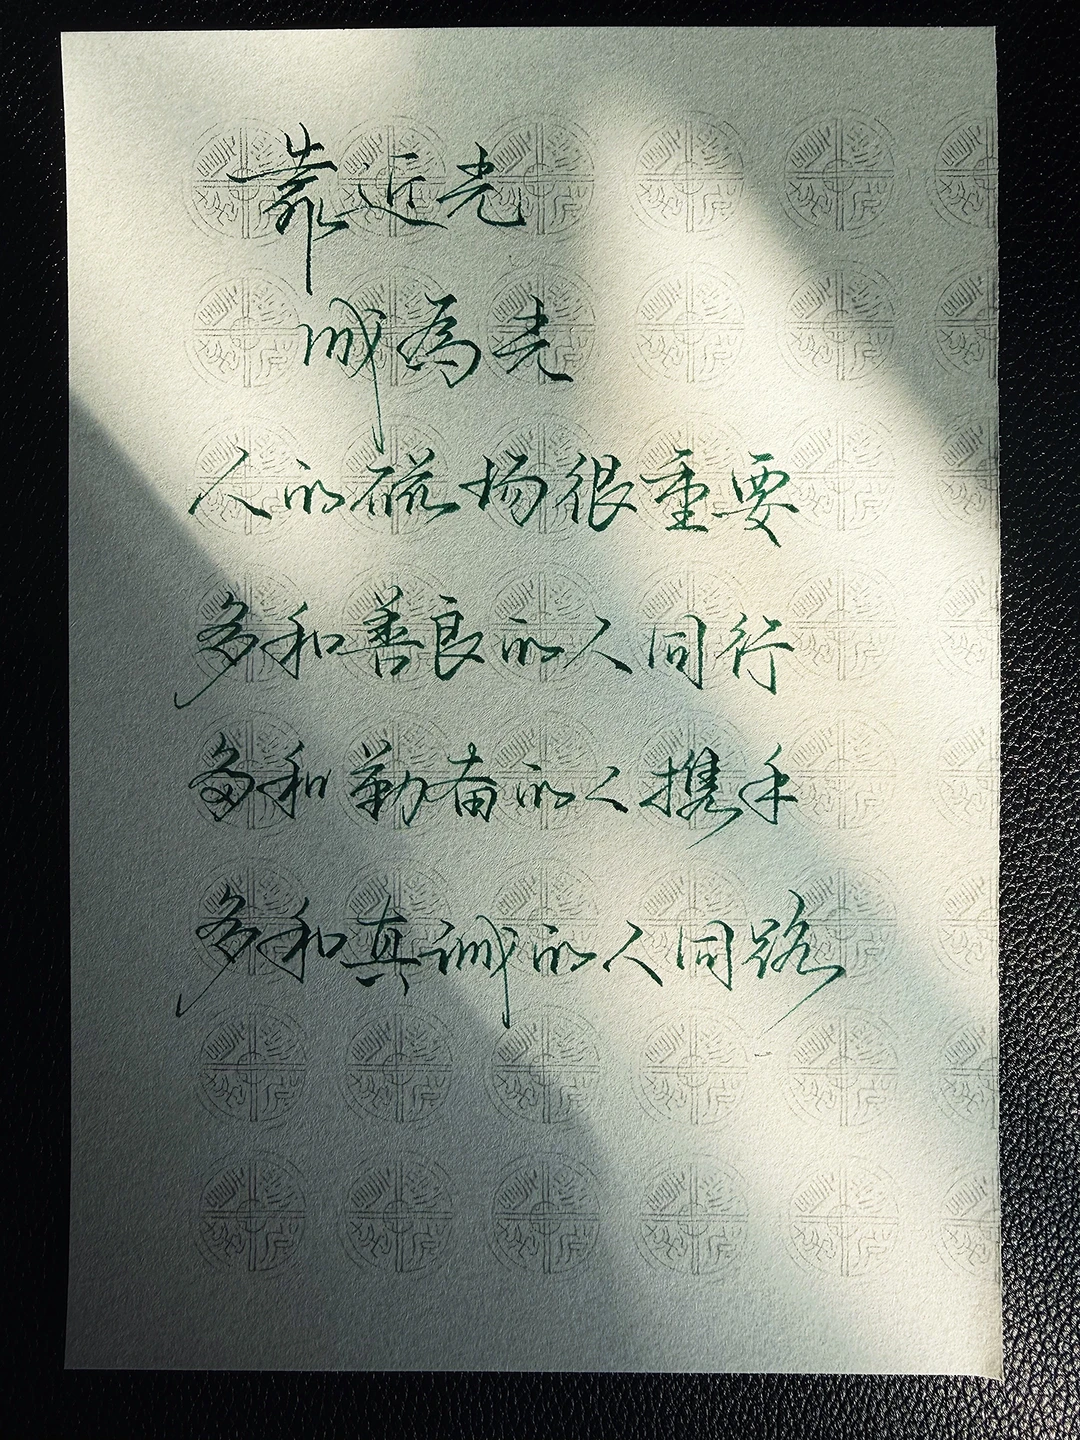 靠近光
成为光
人的磁场很重要
多和善良的人同行
多和勤奋的人携手
多和真诚的人同路